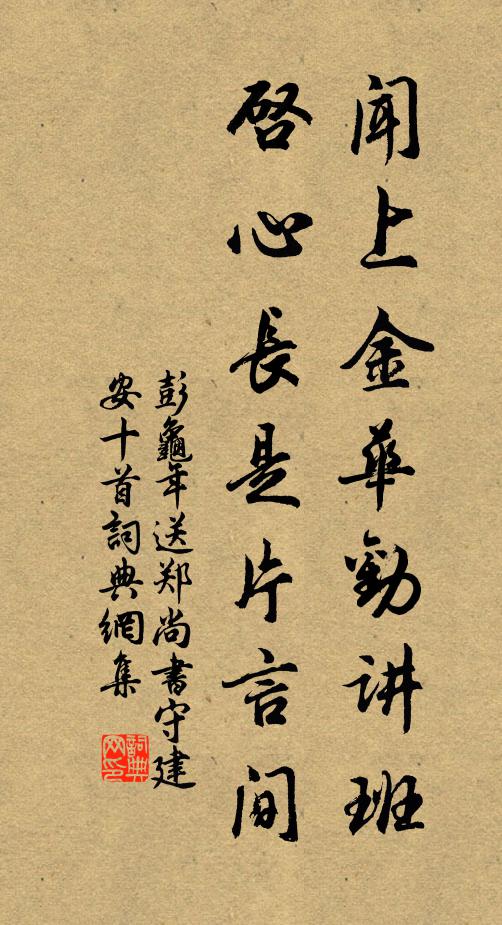 闻上金华劝讲班
啓心長是片言间
彭龜年送郑尚書守建
安十首詞典網集
詞典
网印